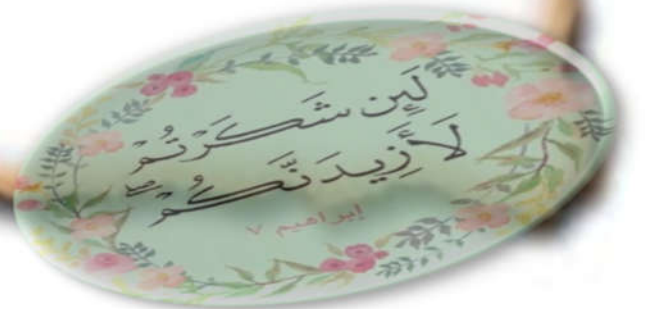 لَئِن شَكَرْتُمْ
لَأَزِيدَنَّكُمْ
إبراهيم ٧